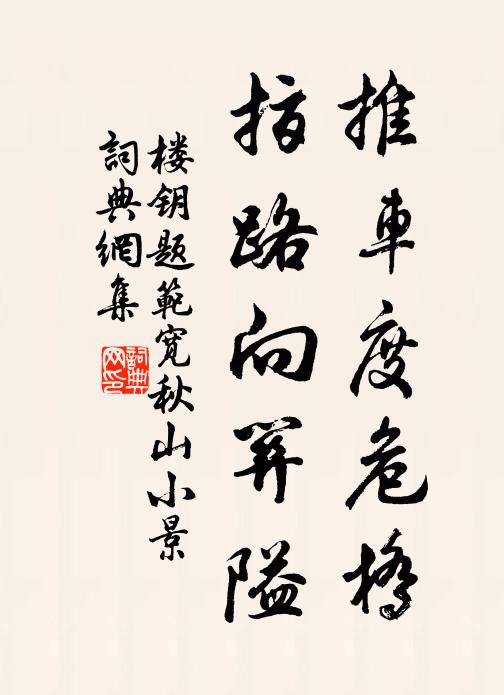 推車度危橋
指路向關隘
楼钥题範寛秋山小景
詞典網集
詞典网印